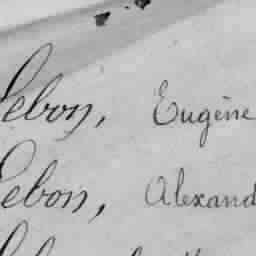 Lebon, Eugène
Lebon, Alexand